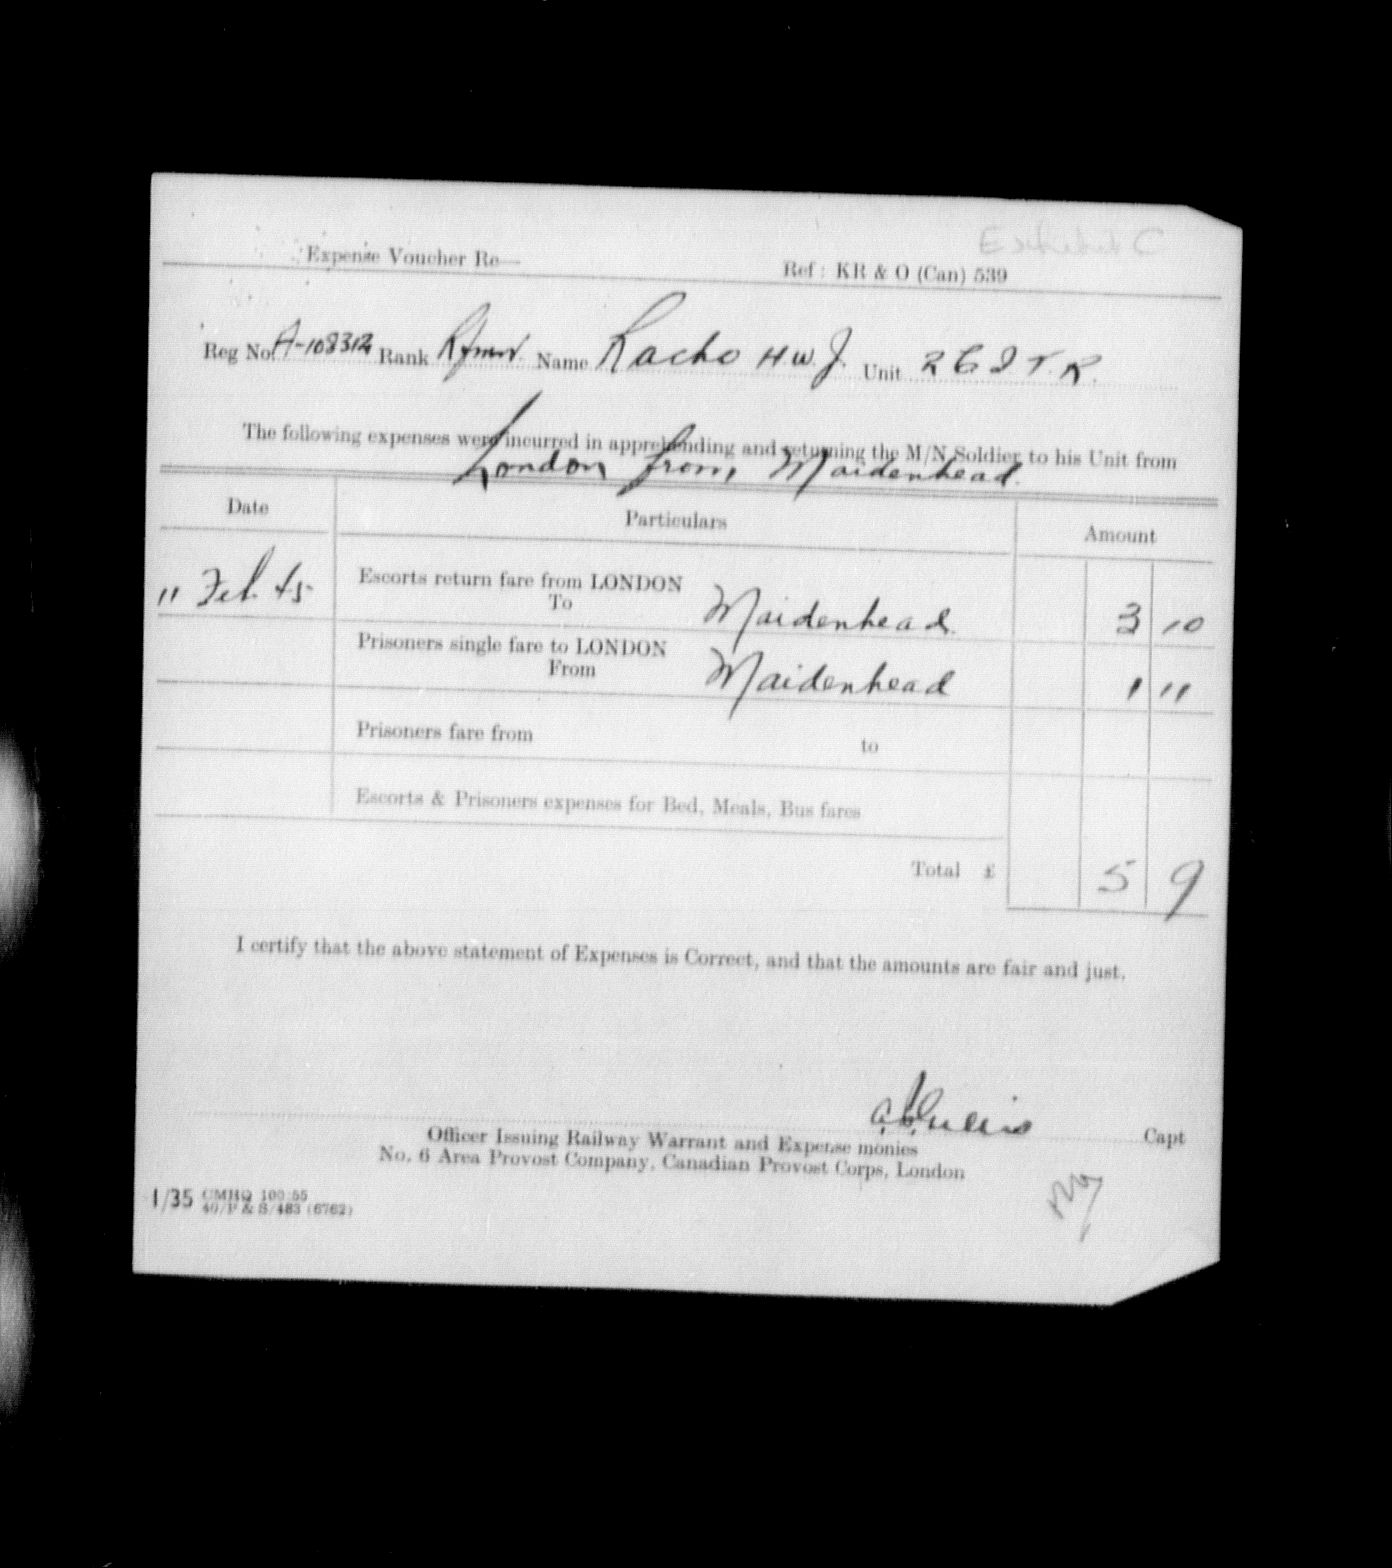 Exhibit C
Expense Voucher Re—
Ref : KR & O (Can) 539
Reg No. A-108312 Rank Rfmn. Name Racho H.W.J. Unit 2 C I T. R.
The following expenses were incurred in apprehending and returning the M/N Soldier to his Unit from
London from Maidenhead.
Date Particulars Amount
11 Feb 45 Escorts return fare from LONDON
To Maidenhead. 3 10
Prisoners single fare to LONDON
From Maidenhead 1 11
Prisoners fare from to
Escorts & Prisoners expenses for Bed, Meals, Bus fares
Total £ 5 9
I certify that the above statement of Expenses is Correct, and that the amounts are fair and just.
Capt
Officer Issuing Railway Warrant and Expense monies
No. 6 Area Provost Company, Canadian Provost Corps, London
1/35 CMHQ 100/55
40/P & S/483 (6762)